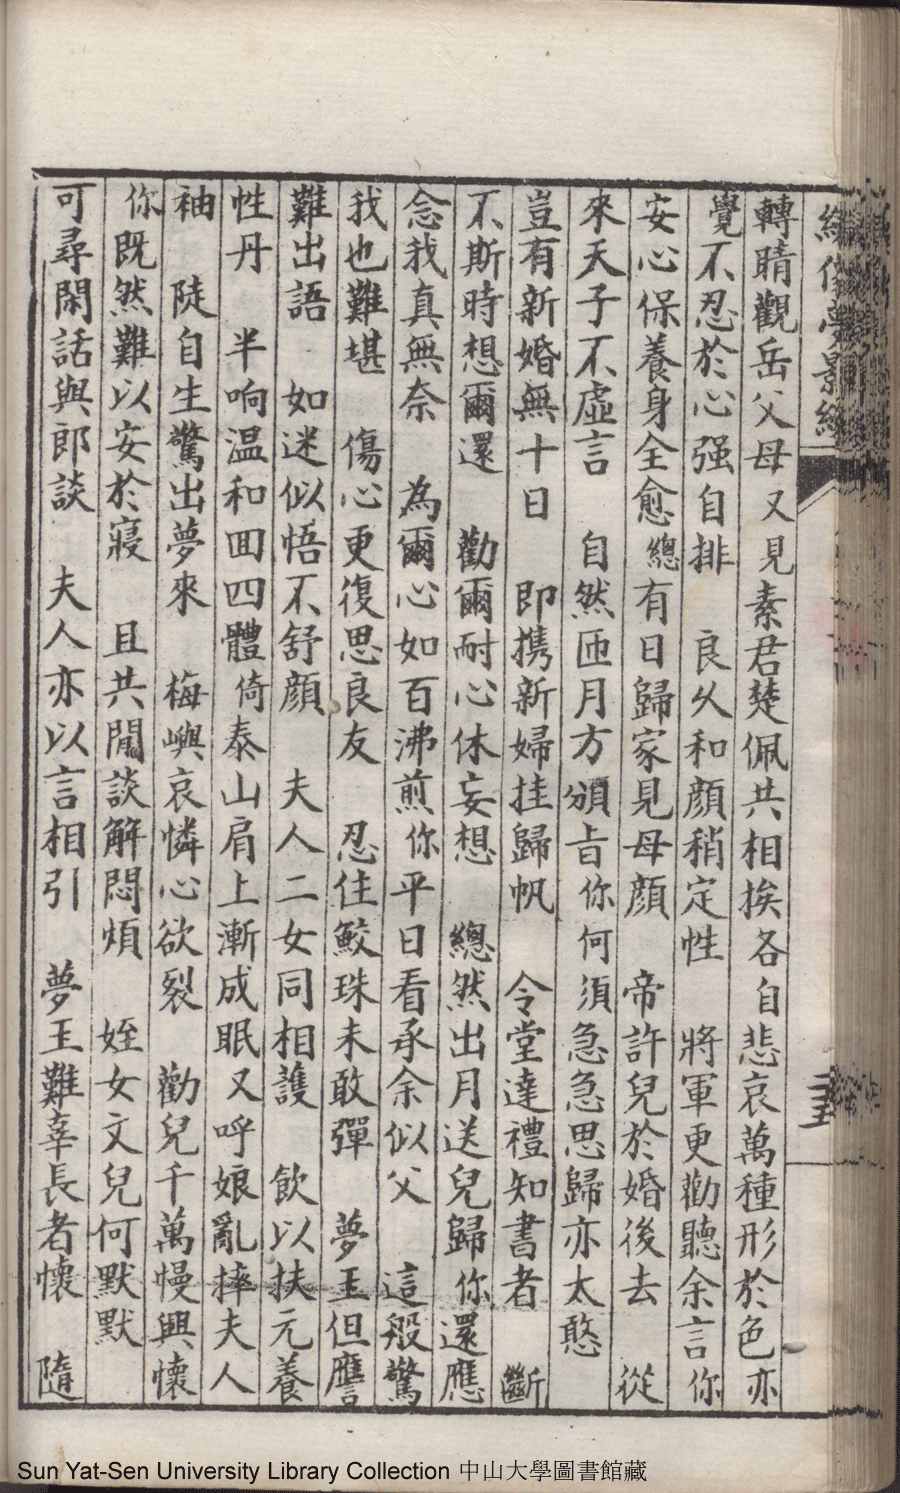 轉睛觀岳父母又見素君楚佩共相挨各自悲哀萬種形於色亦
覺不忍於心强自排　良久和顏稍定性　將軍更勸聽余言你
安心保養身全愈總有日歸家見母顏　帝許兒於婚後去　從
來天子不虛言　自然匝月方頒旨你何須急急思歸亦太憨
豈有新婚無十日　即携新婦挂歸帆　令堂達禮知書者　斷
不斯時想爾還　勸爾耐心休妄想　總然出月送兒歸你還應
念我真無奈　為爾心如百沸煎你平日看承余似父　這般驚
我也難堪　傷心更復思良友　忍住鮫珠未敢彈　夢玉但譍
難出語　如迷似悟不舒顏　夫人二女同相護　飲以扶元養
性丹　半晌温和囬四體倚泰山肩上漸成眠又呼娘亂摔夫人
袖　陡自生驚出夢來　梅嶼哀憐心欲裂　勸兒千萬慢興懷
你既然難以安於寢　且共閒談解悶煩　姪女文兒何默默
可尋閑話與郎談　夫人亦以言相引　夢玉難辜長者懷　隨
Sun Yat-Sen University Library Collection 中山大學圖書館藏